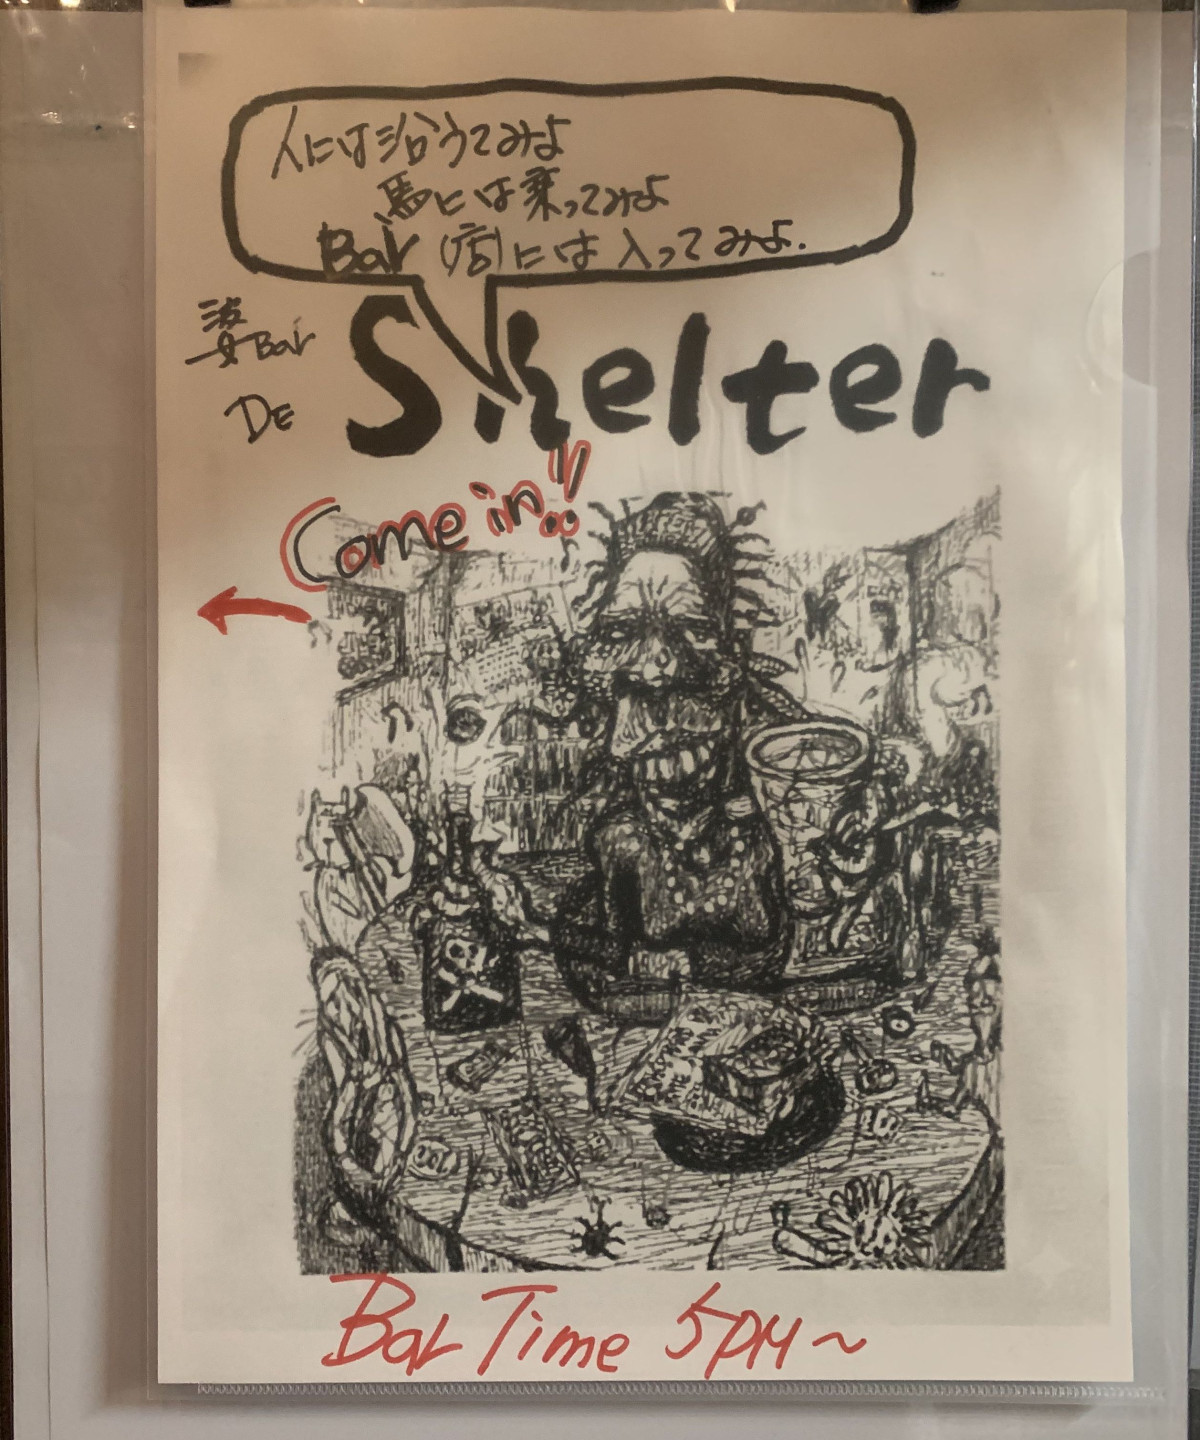 人には沿うてみよ
馬には乗ってみよ
Bar (店)には入ってみよ.
婆Bar
DE
Shelter
Come in!!
Bar Time 5PM~